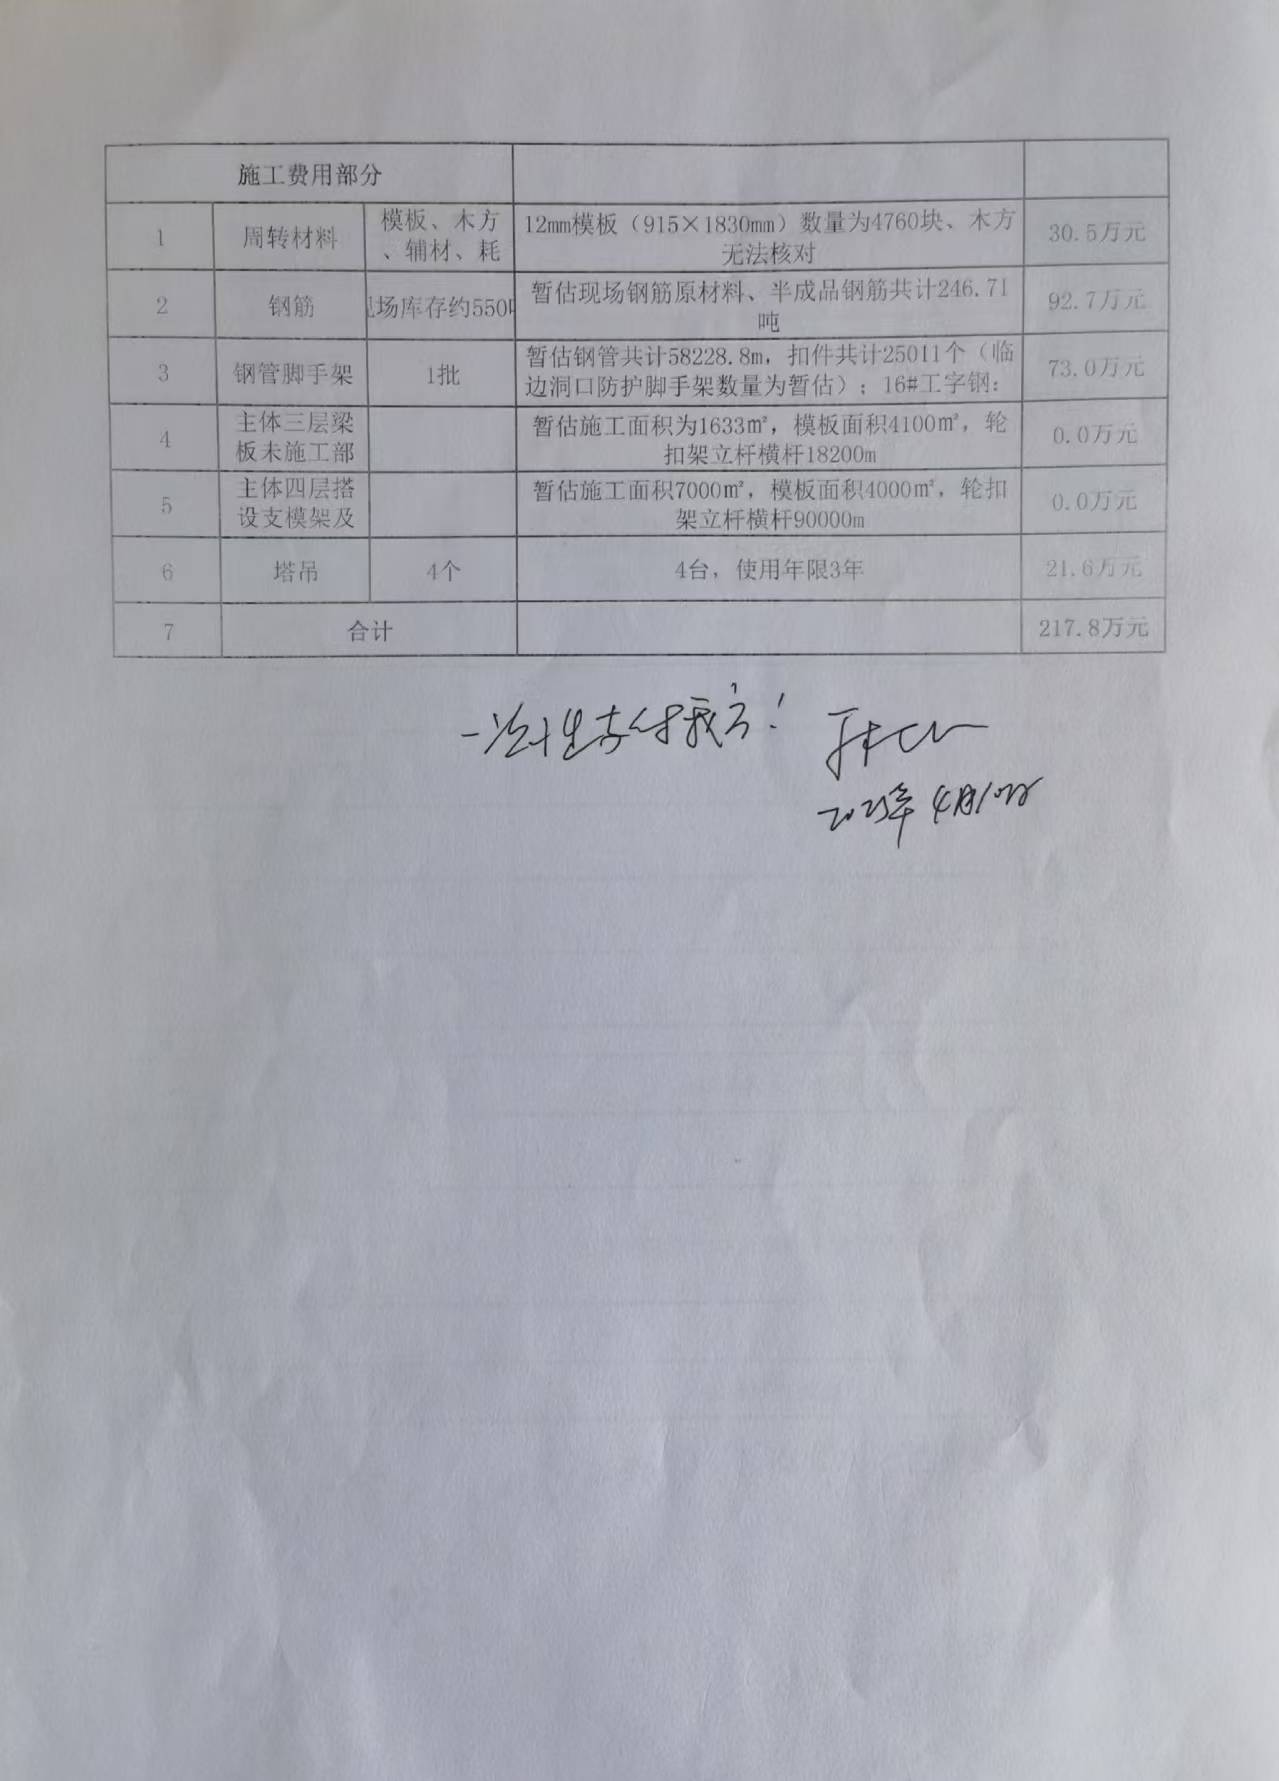 施工费用部分
1 周转材料 模板、木方、辅材、耗 12mm模板（915×1830mm）数量为4760块、木方无法核对 30.5万元
2 钢筋 场库存约550 暂估现场钢筋原材料、半成品钢筋共计246.71吨 92.7万元
3 钢管脚手架 1批 暂估钢管共计58228.8m，扣件共计25011个（临边洞口防护脚手架数量为暂估）；16#工字钢： 73.0万元
4 主体三层梁板未施工部 暂估施工面积为1633㎡，模板面积4100㎡，轮扣架立杆横杆18200m 0.0万元
5 主体四层搭设支模架及 暂估施工面积7000㎡，模板面积4000㎡，轮扣架立杆横杆90000m 0.0万元
6 塔吊 4个 4台，使用年限3年 21.6万元
7 合计 217.8万元
一次性支付我方！
2023年4月10日